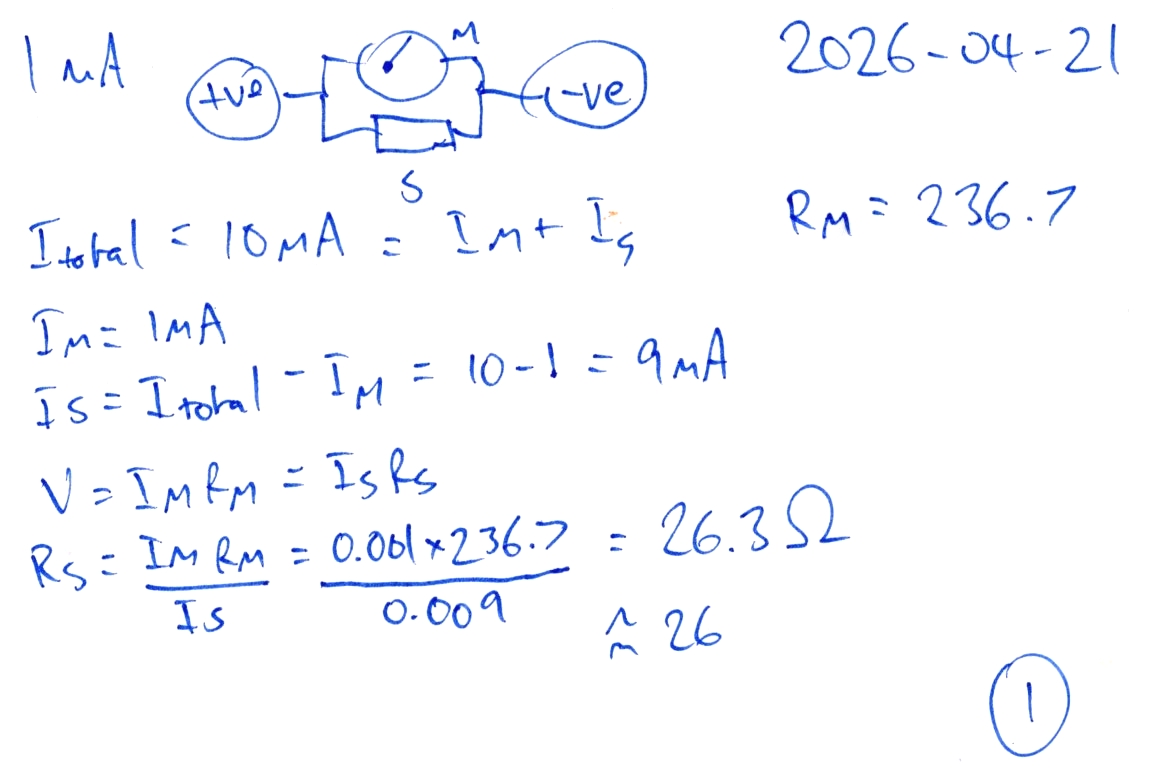 1 mA
2026-04-21
M
+ve
-ve
S
I total = 10mA = I M + I s
R M = 236.7
I M = 1mA
I S = I total - I M = 10 - 1 = 9mA
V = I M R M = I S R S
R S = I M R M / I S = 0.001 x 236.7 / 0.009 = 26.3 Ω
≈ 26
1